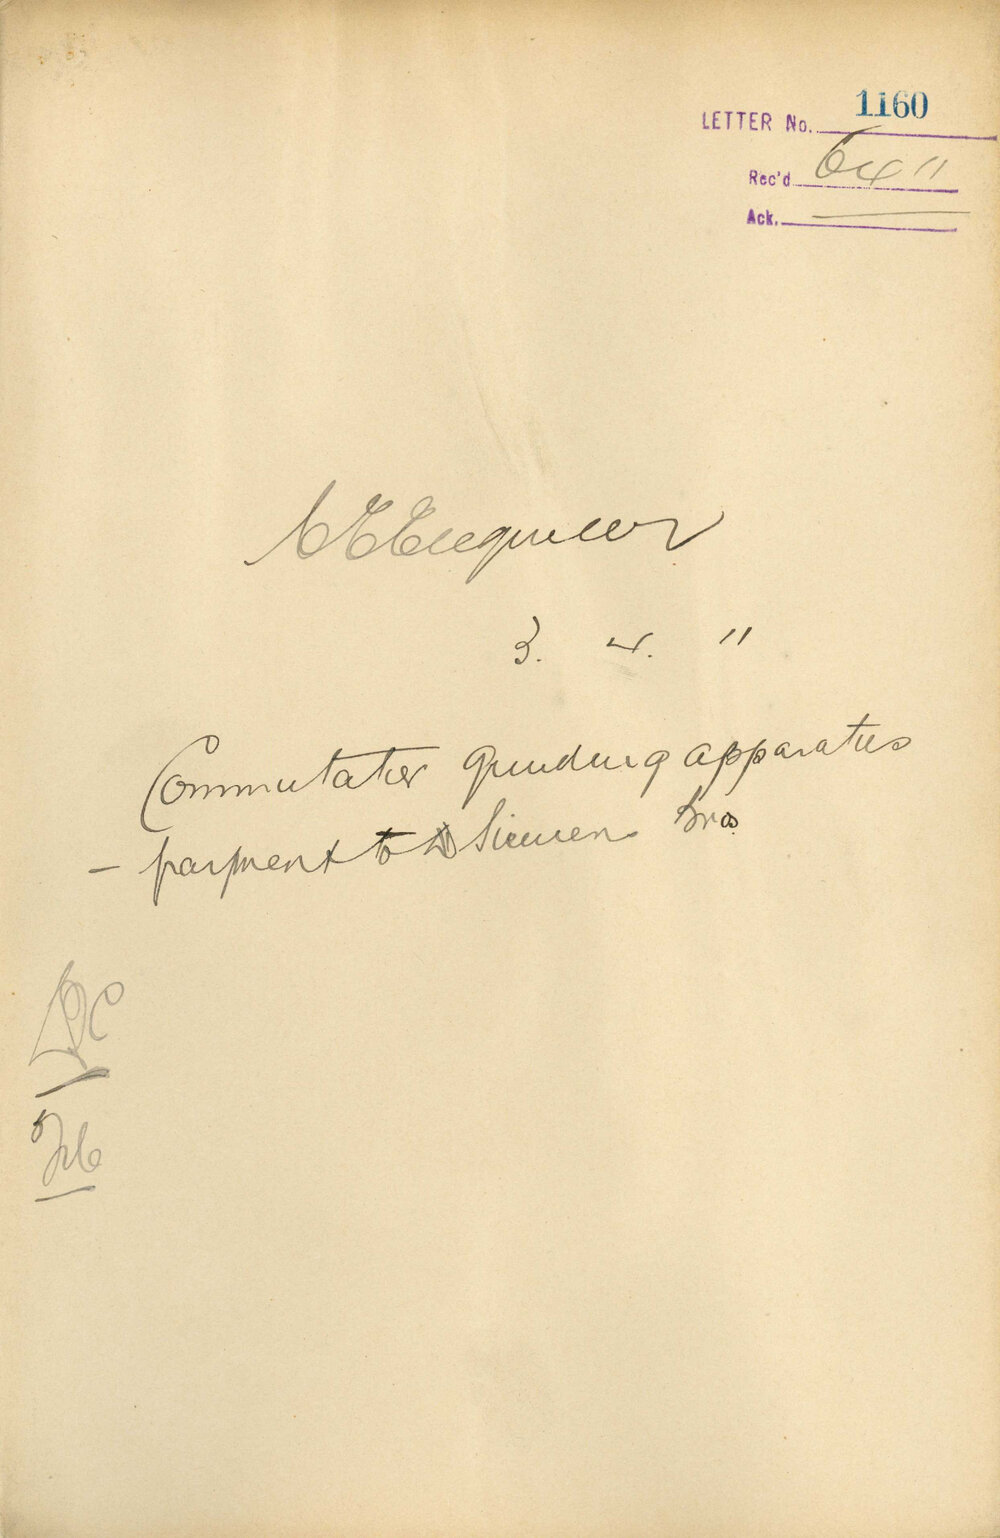 1160
LETTER No.
Rec'd 6 4 11
Ack.
C E Engineer
3. 4. 11
Commutator grinding apparatus
- payment to Siemens Bros.